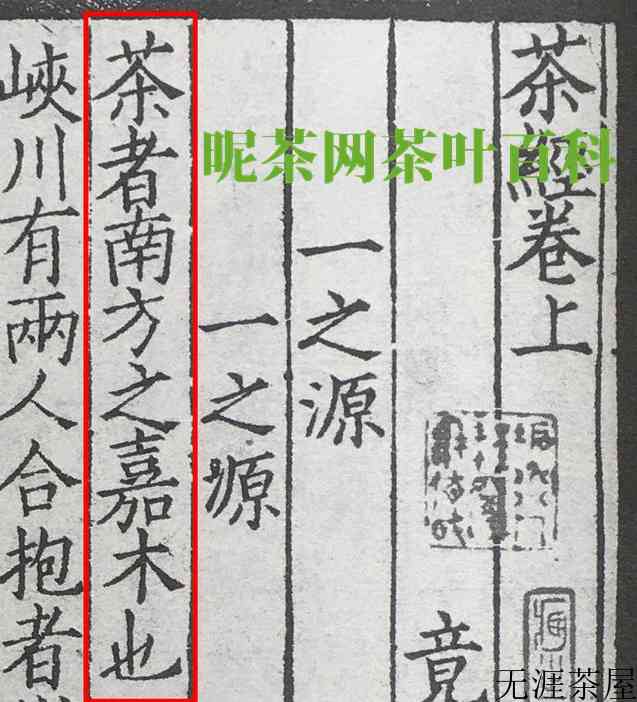 茶經卷上
竟
一之源
一之源
茶者南方之嘉木也
峽川有兩人合抱者
昵茶网茶叶百科
无涯茶屋